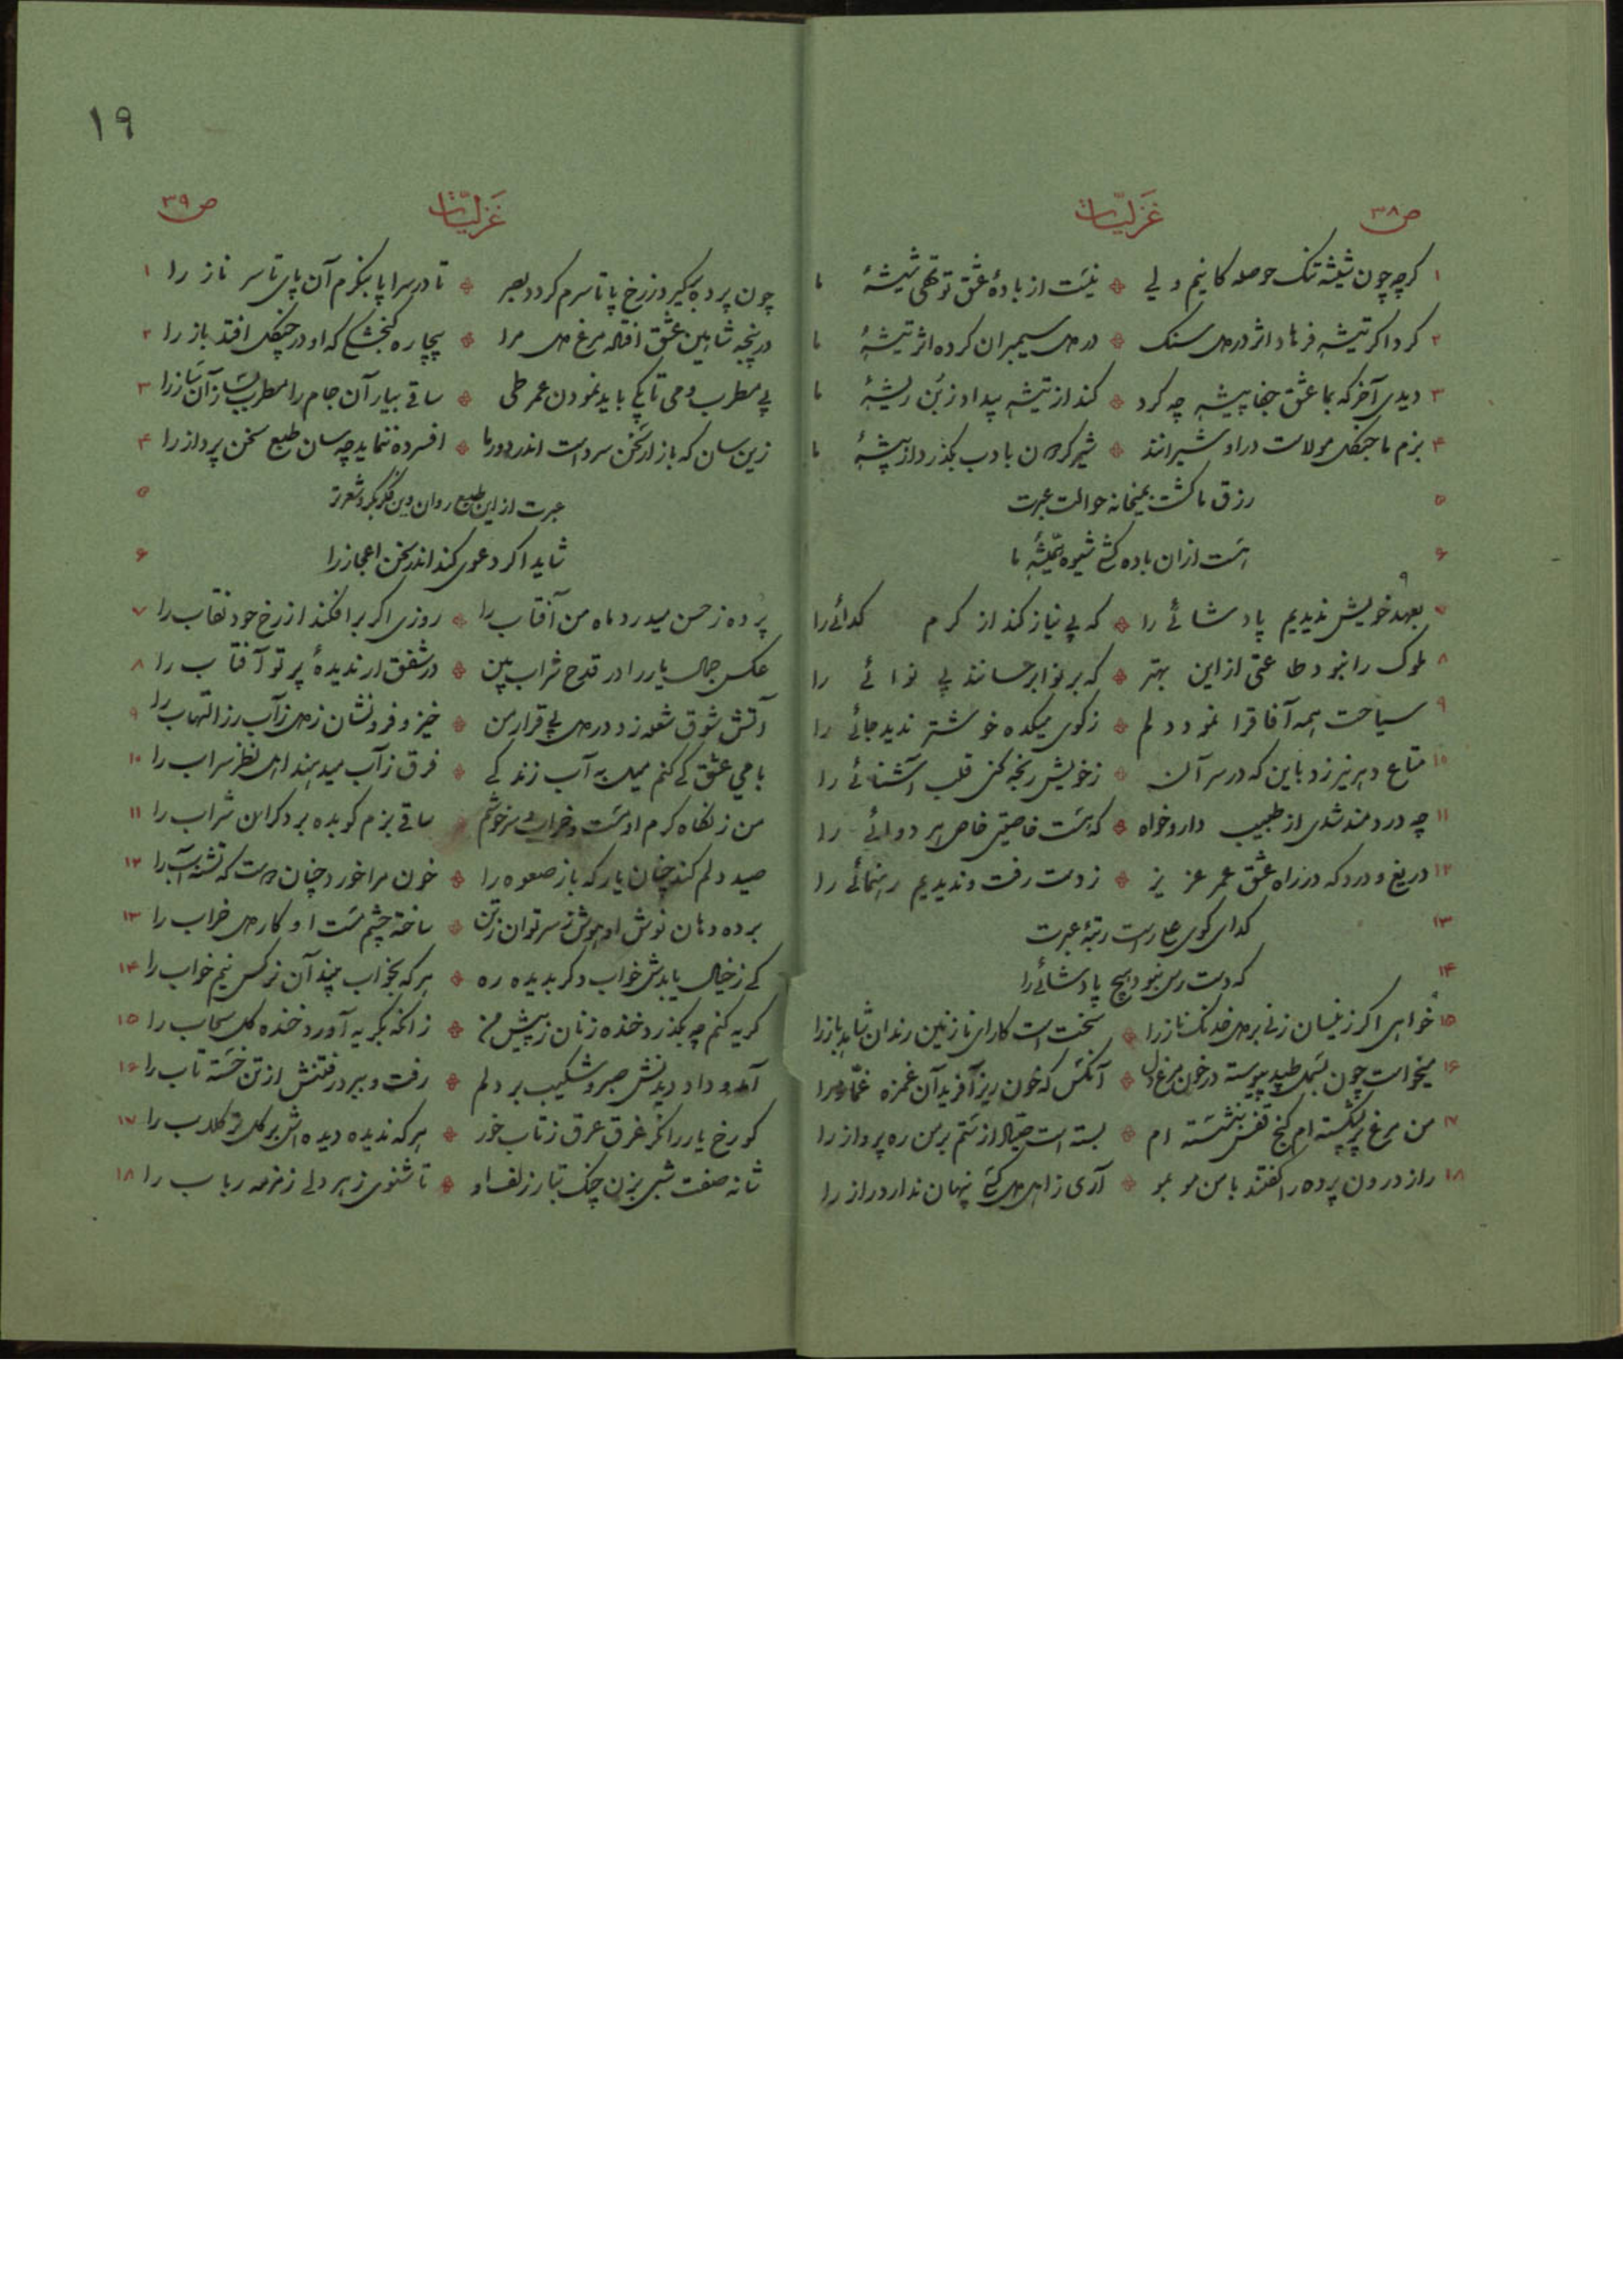 ص۳۸
غزلیات
۱ گرچه چون شیشه تنک حوصله کانیم ولی نیست از بادهٔ عشق تو تهی شیشهٔ ما
۲ کرد اگر تیشه فرهاد اثر در دل سنک در دل سیمبران کرده اثر تیشهٔ ما
۳ دیدی آخر که بما عشق جفا پیشه چه کرد کند از تیشه بیداد ز بن ریشهٔ ما
۴ بزم ما جنکل مولاست در او شیرانند شیر کردن با دب بکذرد از بیشهٔ ما
۵ رزق ما کشت بمیخانه حوالت عبرت
۶ هست ازان باده کشی شیوه و پیشهٔ ما
۹
۷ بعهد خویش ندیدیم پادشائے را که بی نیاز کند از کرم کدائے را
۸ ملوک را نبود طاعتی ازاین بهتر که بر نوا برسانند بی نوائے را
۹ سیاحت همه آفاقرا نمود دلم زکوی میکده خوشتر ندید جائے را
۱۰ متاع دهر نیرزد باین که در سر آن زخویش رنجه کنی قلب آشنائے را
۱۱ چه دردمند شدی از طبیب دارو خواه که هست خاصیتی خاص هر دوائے را
۱۲ دریغ و درد که در راه عشق عمر عزیز ز دست رفت و ندیدیم رهنمائے را
۱۳ کدای کوی علے راست رتبهٔ عبرت
۱۴ که دست رس نبود هیچ پادشائے را
۱۵ خواهی اکر زینسان زنی بر دل خدنک ناز را سخت است کار ای نازنین رندان شاهد باز را
۱۶ میخواست چون بسمل طپد پیوسته در خون مرغ دل آنکس که خون ریز آفرید آن غمزه غمّاز را
۱۷ من مرغ پر بشکسته ام کنج قفس بنشسته ام بسته است صیاد از ستم بر من ره پرواز را
۱۸ راز درون پرده را کفتند با من مو بمو آری ز اهل دل کسی پنهان ندارد راز را
۱۹
غزلیات
ص۳۹
۱ چون پرده بر کیرد ز رخ پا تا سرم کردد بصر تا در سراپا بنکرم آن پای تا سر ناز را
۲ در پنجه شاهین عشق افتاد مرغ دل مرا بیچاره کنجشکی که او در چنکل افتد باز را
۳ بی مطرب و می تا بکے باید نمودن عمر طی ساقے بیار آن جام را مطرب بساز آن ساز را
۴ زین سان که بازار سخن سرد است اندر دور ما افسرده ننماید چه سان طبع سخن پرداز را
۵ عبرت از این طبع روان وین فکر بکر و شعر تر
۶ شاید اکر دعوی کند اندر سخن اعجاز را
۷ پرده ز حسن میدرد ماه من آفتاب را روزی اکر بر افکند از رخ خود نقاب را
۸ عکس جمال یار را در قدح شراب بین در شفق ار ندیدهٔ پرتو آفتاب را
۹ آتش شوق شعله زد در دل بی قرار من خیز و فرونشان ز دل زآب رز التهاب را
۱۰ با می عشق کے کنم میل به آب زندکے فرق ز آب میدهند اهل نظر سراب را
۱۱ من ز نکاه کرم او مست و خراب و سرخوشم ساقے بزم کو بده بر دکران شراب را
۱۲ صید دلم کند چنان یار که باز صعوه را خون مرا خورد چنان مست که تشنه آب را
۱۳ برده دهان نوش او هوش ز سر توان ز تن ساخته چشم مست او کار دل خراب را
۱۴ کے ز خیال یابدش خواب دکر بدیده ره هر که بخواب بیند آن نرکس نیم خواب را
۱۵ کریه کنم چه بکذرد خنده زنان ز پیش من زانکه بکریه آورد خنده کل سحاب را
۱۶ آمد و داد دیدنش صبر و شکیب بر دلم رفت و ببرد رفتنش از تن خسته تاب را
۱۷ کو رخ یار را نکر غرق عرق ز تاب خور هر که ندیده دیده اش بر کل تر کلاب را
۱۸ شانه صفت شبی بزن چنک بتار زلف او تا شنوی ز هر دلی زمزمه رباب را